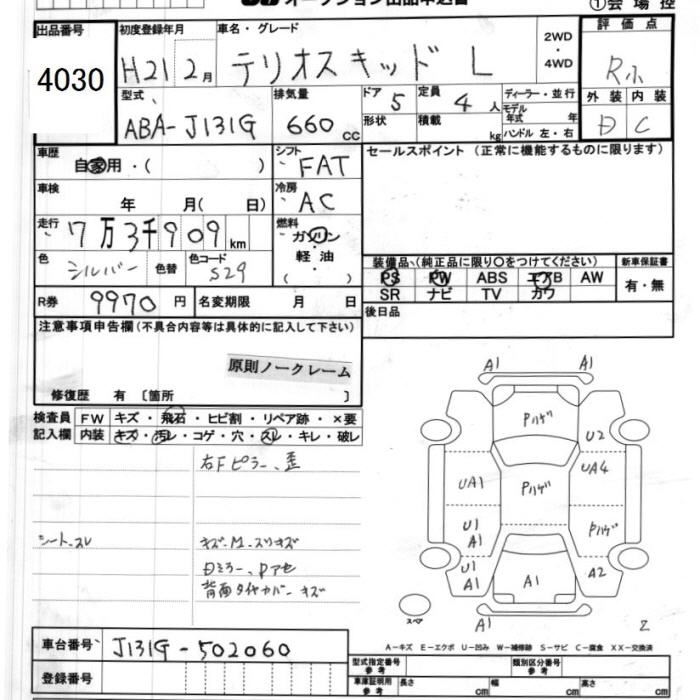 オークション出品申込書
①会場控
出品番号
4030
初度登録年月
H21 2月
車名・グレード
テリオスキッド L
2WD
・
4WD
評価点
R小
外装 内装
D C
型式
ABA-J131G
排気量
660 cc
ドア 5
定員 4人
形状
積載 kg
ディーラー・並行
モデル年式 年
ハンドル 左・右
車歴
自家用・( )
シフト
FAT
車検
年 月( 日)
冷房
AC
走行
7万3千909 km
燃料
ガソリン
・
軽油
( )
色
シルバー
色替
色コード
S29
R券 9970 円
名変期限 月 日
セールスポイント (正常に機能するものに限ります)
装備品(純正品に限り○をつけてください)
PS PW ABS エアB AW
SR ナビ TV カワ
新車保証書
有・無
後日品
注意事項申告欄(不具合内容等は具体的に記入して下さい)
原則ノークレーム
修復歴 有 〔箇所 〕
検査員記入欄
FW キズ・飛石・ヒビ割・リペア跡・×要
内装 キズ・汚レ・コゲ・穴・スレ・キレ・破レ
右Fピラー、歪
シート、スレ
キズ・M・スリキズ
Dミラー、Pアセ
背面タイヤカバー キズ
A1 A1
Pハゲ
U2
UA1
Pハゲ
UA4
U1
A1
Pハゲ
U1
A1
A1
A2
スペア
A1
2
A－キズ E－エクボ U－凹み W－補修跡 S－サビ C－腐食 XX－交換済
車台番号
J131G-502060
登録番号
型式指定番号
参考
類別区分番号
参考
車庫証明用
参考
長さ cm 幅 cm 高さ cm